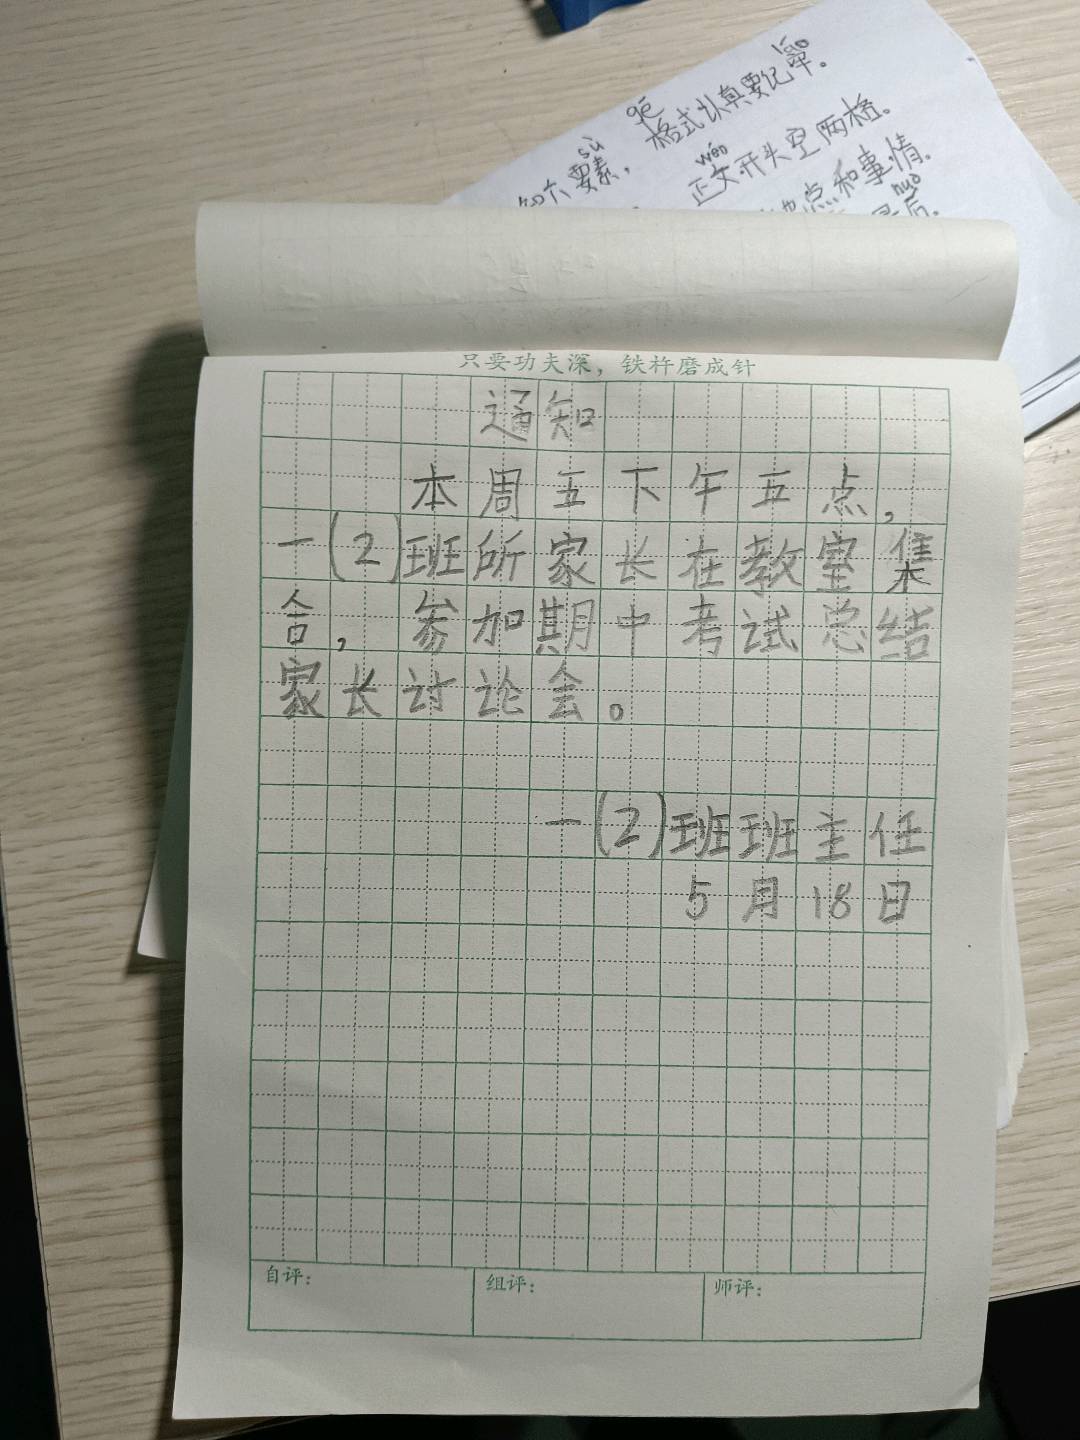 lǎo
gē
sù
知六要素，格式认真要记牢。
wén
正文开头空两格。
点和事情.
huò
后.
只要功夫深，铁杵磨成针
通知
本周五下午五点，
一(2)班所家长在教室集
舍，参加期中考试总结
家长讨论会。
一(2)班班主任
5月18日
自评： 组评： 师评：